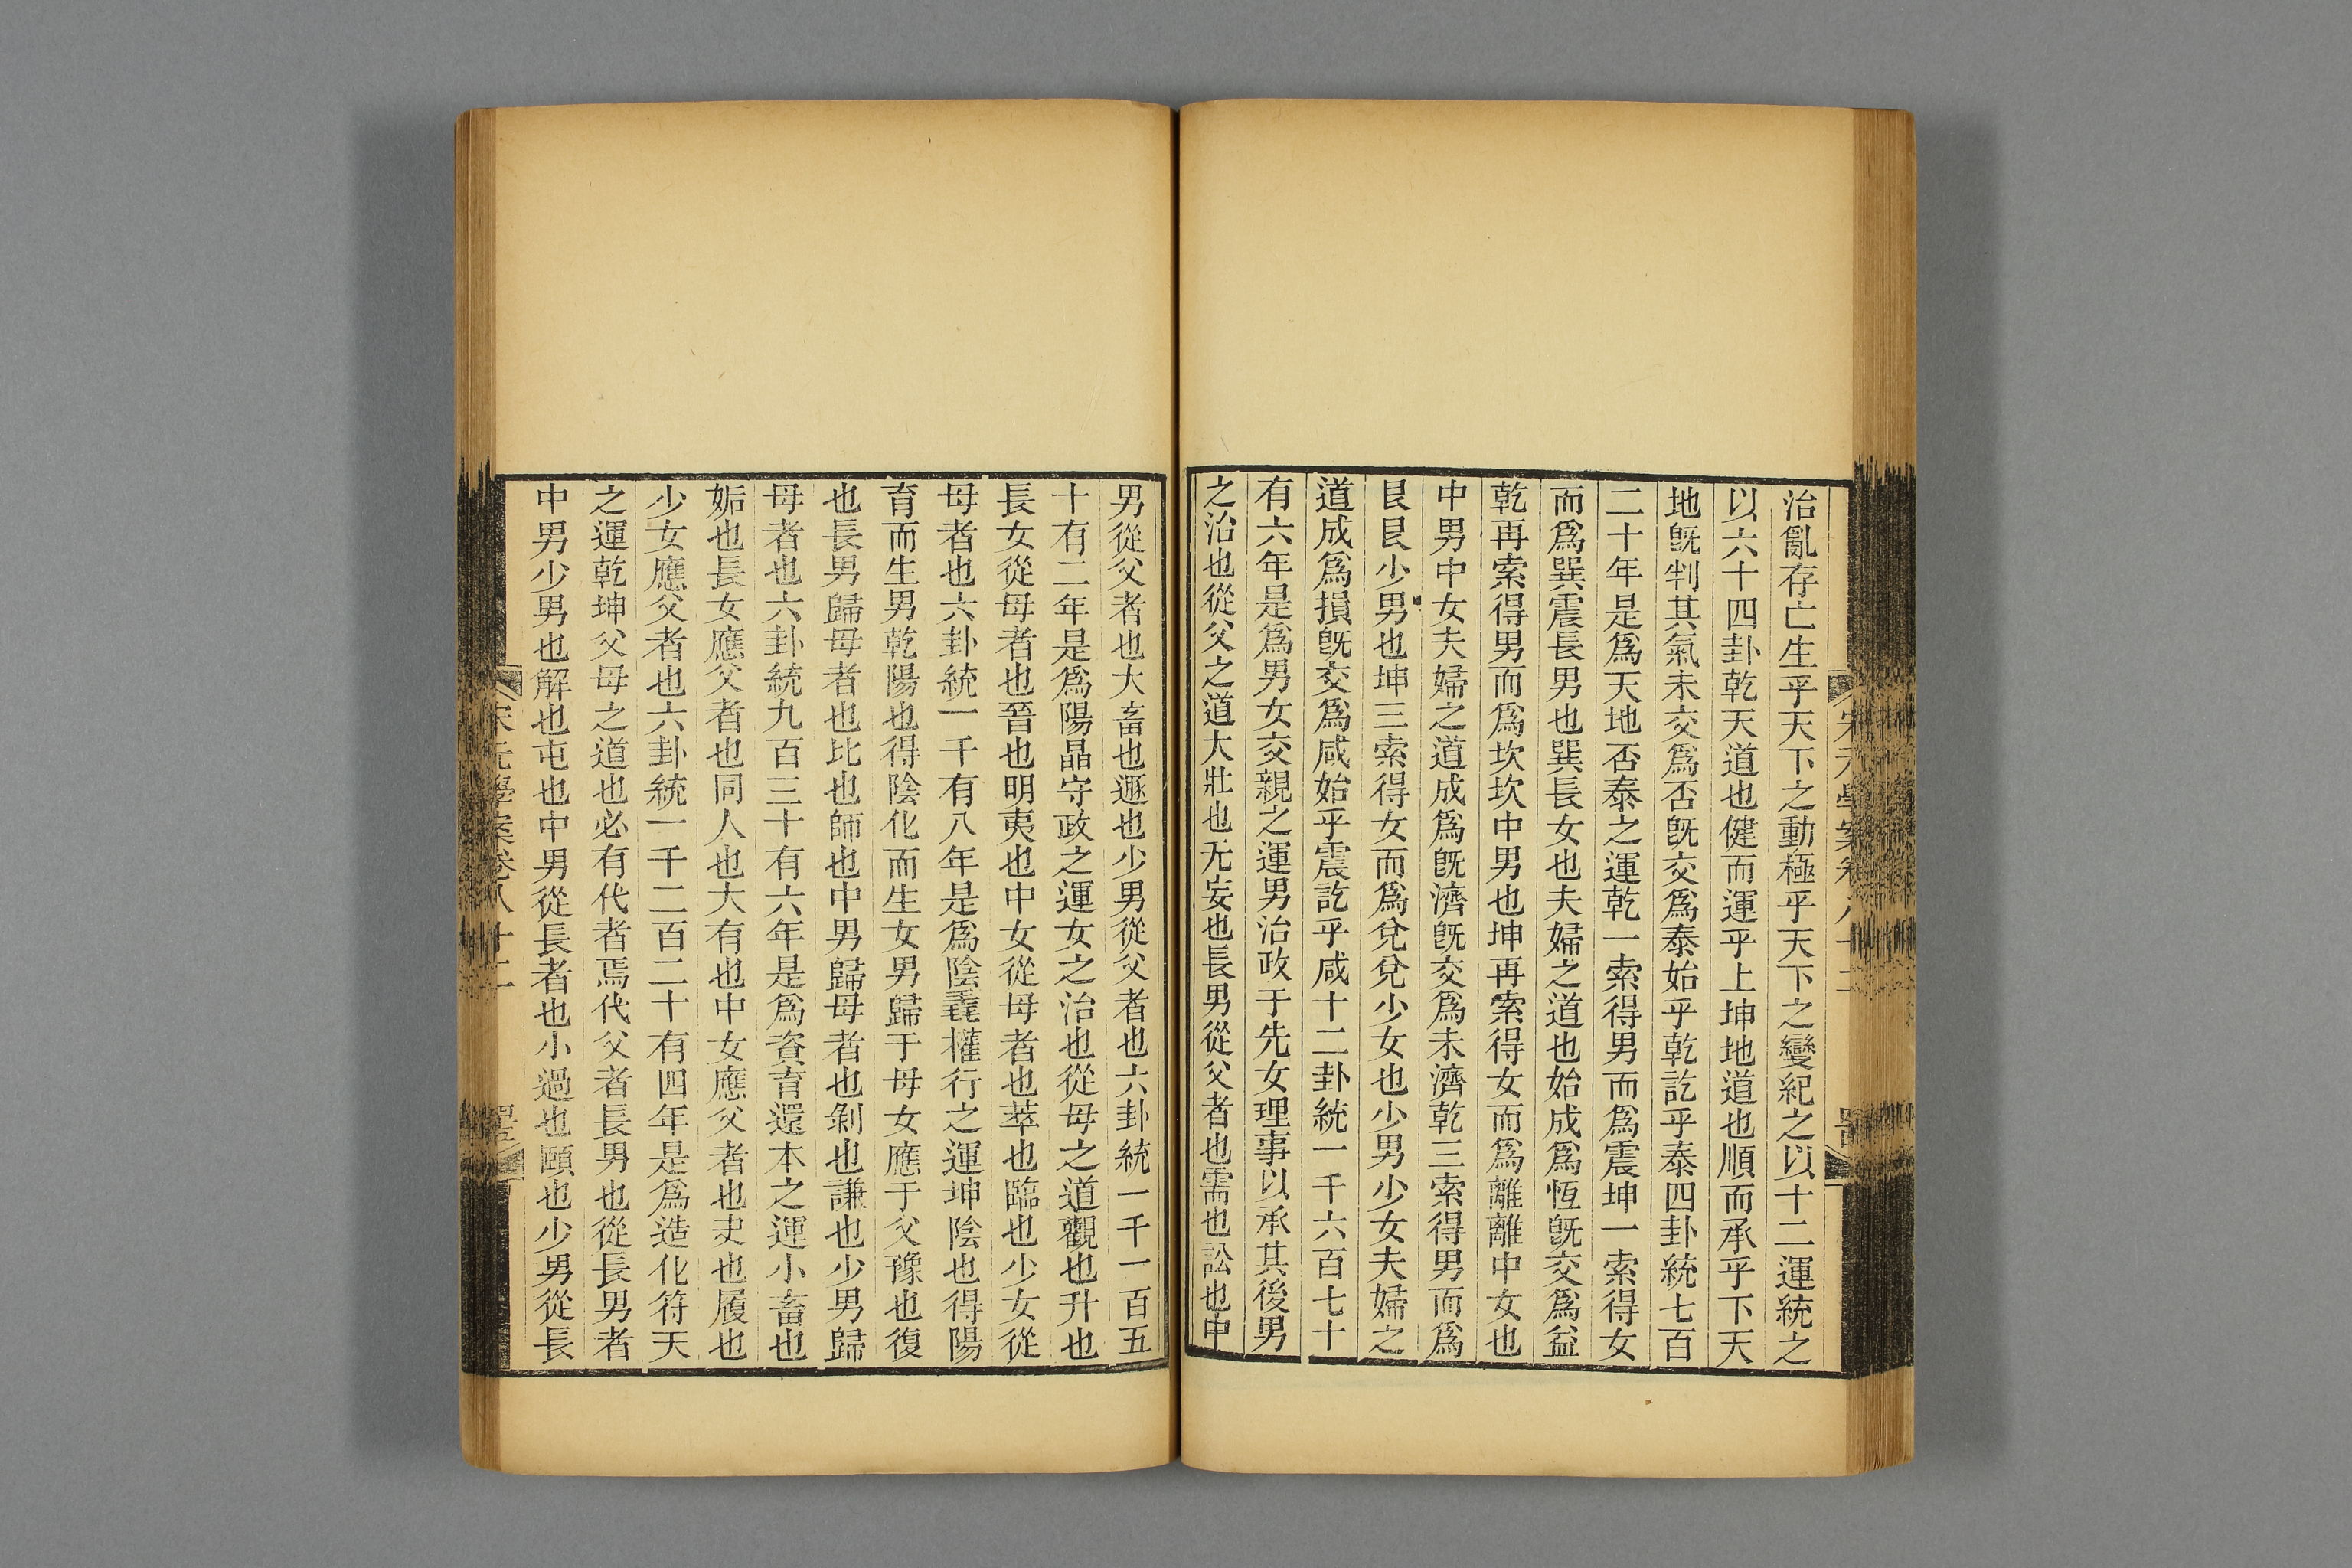 治亂存亡生乎天下之動極乎天下之變紀之以十二運統之
以六十四卦乾天道也健而運乎上坤地道也順而承乎下天
地旣判其氣未交爲否旣交爲泰始乎乾訖乎泰四卦統七百
二十年是爲天地否泰之運乾一索得男而爲震坤一索得女
而爲巽震長男也巽長女也夫婦之道也始成爲恆旣交爲益
乾再索得男而爲坎坎中男也坤再索得女而爲離離中女也
中男中女夫婦之道成爲旣濟旣交爲未濟乾三索得男而爲
艮艮少男也坤三索得女而爲兌兌少女也少男少女夫婦之
道成爲損旣交爲咸始乎震訖乎咸十二卦統一千六百七十
有六年是爲男女交親之運男治政于先女理事以承其後男
之治也從父之道大壯也无妄也長男從父者也需也訟也中
男從父者也大畜也遯也少男從父者也六卦統一千一百五
十有二年是爲陽晶守政之運女之治也從母之道觀也升也
長女從母者也晉也明夷也中女從母者也萃也臨也少女從
母者也六卦統一千有八年是爲陰毳權行之運坤陰也得陽
育而生男乾陽也得陰化而生女男歸于母女應于父豫也復
也長男歸母者也比也師也中男歸母者也剝也謙也少男歸
母者也六卦統九百三十有六年是爲資育還本之運小畜也
姤也長女應父者也同人也大有也中女應父者也夬也履也
少女應父者也六卦統一千二百二十有四年是爲造化符天
之運乾坤父母之道也必有代者焉代父者長男也從長男者
中男少男也解也屯也中男從長者也小過也頤也少男從長
宋元學案卷八十二